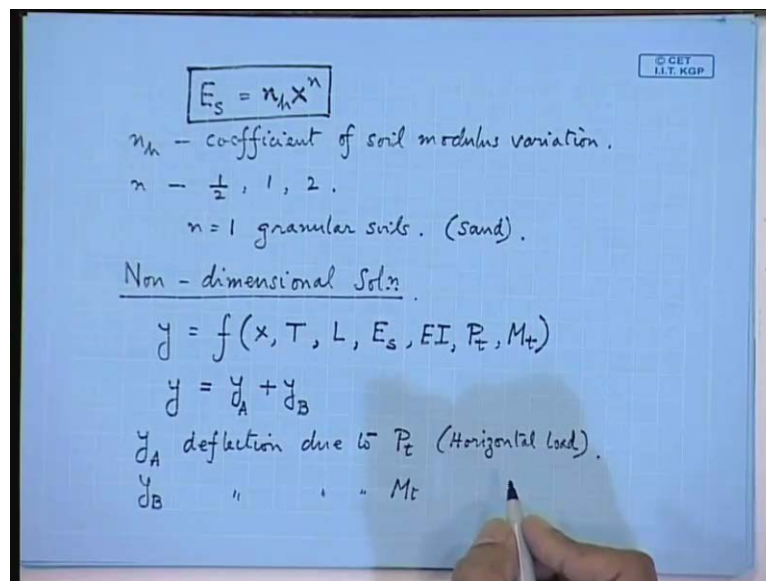 © CET
I.I.T. KGP
E_s = n_h x^n
n_h - coefficient of soil modulus variation.
n - 1/2, 1, 2.
n = 1 granular soils. (Sand).
Non - dimensional Sol.n.
y = f(x, T, L, E_s, EI, P_t, M_t)
y = y_A + y_B
y_A deflection due to P_t (Horizontal Load).
y_B " " " M_t